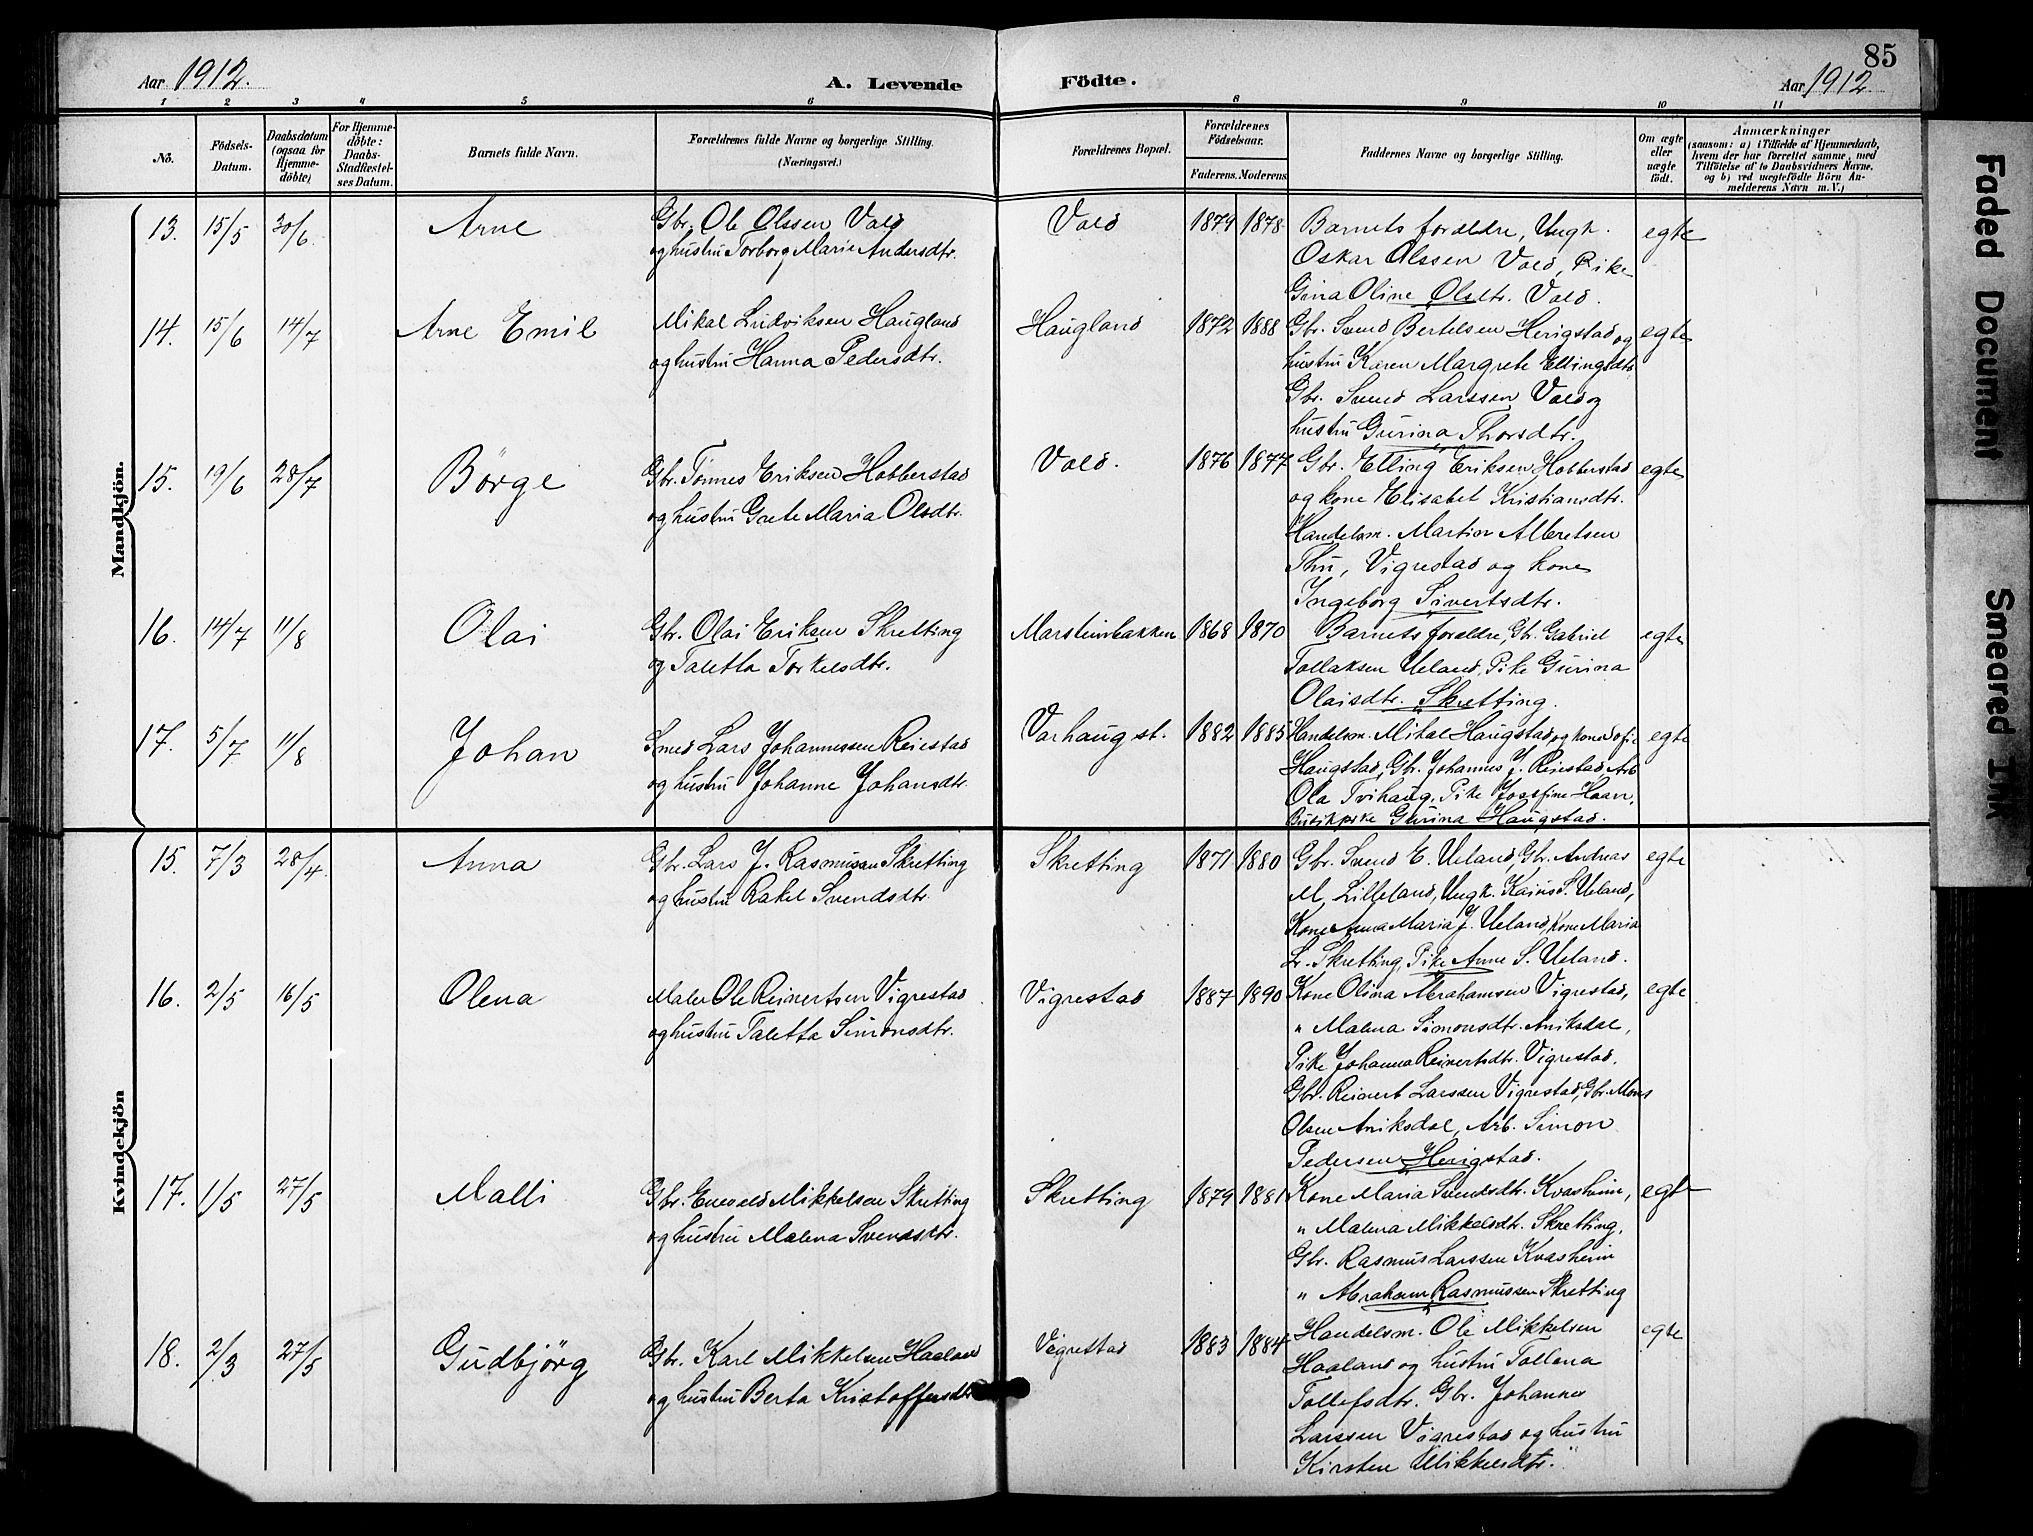 85
Aar 1912.
A. Levende Födte.
Aar 1912
1 2 3 4 5 6 8 9 10 11
No.
Födsels-Datum.
Daabsdatum (ogsaa for Hjemme-döbte)
For Hjemme-döbte: Daabs-Stadfæstel-ses Datum.
Barnets fulde Navn.
Forældrenes fulde Navne og borgerlige Stilling. (Næringsvei.)
Forældrenes Bopæl.
Forældrenes Födselsaar.
Faderens. Moderens
Faddernes Navne og borgerlige Stilling.
Om ægte eller uægte födt.
Anmærkninger
(saasom: a) i Tilfælde af Hjemmedaab, hvem der har forrettet samme, med Tilföielse af to Daabsvidners Navne, og b) ved uægtefödte Börn An-melderens Navn m.V.)
Mandkjön.
13. 15/5 30/6 Arne
Gbr. Ole Olssen Vold
og hustru Torborg Marie Andersdtr.
Vold 1879 1878
Barnets foraldre, Ungk.
Oskar Olssen Vold, Pike
Gina Oline Olsdtr. Vold.
egte
14. 15/6 14/7 Arne Emil
Mikal Ludviksen Haugland
og hustru Hanna Pedersdtr.
Haugland 1872 1888
Gbr. Svend Bertelsen Herigstad og
hustru Karen Margrete Ellingsdtr.
Gbr. Svend Larssen Vold og
hustru Gurina Thorsdtr.
egte
15. 19/6 28/7 Börge
Gbr. Tönnes Eriksen Hobberstad
og hustru Grete Maria Olsdtr.
Vold. 1876 1877
Gbr. Elling Eriksen Hobberstad
og kone Elisabet Kristiansdtr.
Handelsm. Martin Albretsen
Thu, Vigrestad og kone
Ingeborg Sivertsdtr.
egte
16. 14/7 11/8 Olai
Gbr. Olai Eriksen Skretting
og Taletta Torkelsdtr.
Marsteinbakken 1868 1870
Barnets foraldre, Gbr. Gabriel
Tollaksen Ueland, Pike Gurina
Olaisdtr. Skretting.
egte
17. 5/7 11/8 Johan
Smed Lars Johannessen Reiestad
og hustru Johanne Johansdtr.
Varhaug st. 1882 1885
Handelsm. Mikal Haugstad og kone Sofie
Haugstad, Gbr. Johannes J. Reiestad Arb
Ola Tvihaug, Pike Josefine Haan,
Gurina Haugstad.
egte
Kvindekjön
15. 7/3 28/4 Anna
Gbr. Lars J. Rasmussen Skretting
og hustru Rakel Svendsdtr.
Skretting 1871 1880
Gbr. Svend E. Ueland, Gbr. Andreas
M. Lilleland, Ungk. Kainus S. Ueland,
Kone Anna Maria J. Ueland, Kone Maria
L. Skretting, Pike Anne S. Ueland.
egte
16. 2/5 16/5 Olena
Maler Ole Reinertsen Vigrestad
og hustru Taletta Simonsdtr.
Vigrestad 1887 1890
Kone Olina Abrahamsen Vigrestad,
" Malena Simonsdtr. Aniksdal,
Pike Johanna Reinertsdtr. Vigrestad.
Gbr. Reinert Larssen Vigrestad, Gbr. Mons
Olsen Aniksdal, Arb. Simon
Pedersen Herigstad.
egte
17. 1/5 27/5 Malli
Gbr. Enevald Mikkelsen Skretting
og hustru Malena Svendsdtr.
Skretting 1879 1881
Kone Maria Svendsdtr. Kvasheim,
" Malena Mikkelsdtr. Skretting,
Gbr. Rasmus Larssen Kvasheim
" Abraham Rasmussen Skretting
egte
18. 2/3 27/5 Gudbjörg
Gbr. Karl Mikkelsen Haaland
og hustru Berta Kristoffersdtr
Vigrestad 1883 1884
Handelsm. Ole Mikkelsen
Haaland og hustru Tollena
Tollefsdtr. Gbr. Johannes
Larssen Vigrestad og hustru
Kirsten Mikkelsdtr.
egte
Faded Document
Smeared Ink